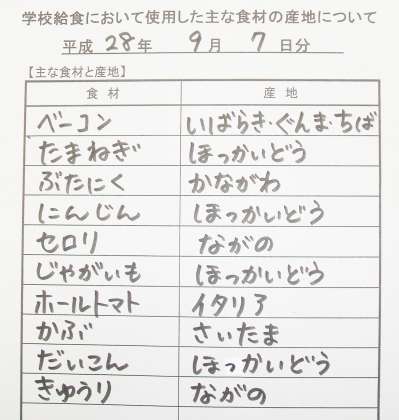 学校給食において使用した主な食材の産地について
平成 28 年 9 月 7 日分
【主な食材と産地】
食材 産地
ベーコン いばらき・ぐんま・ちば
たまねぎ ほっかいどう
ぶたにく かながわ
にんじん ほっかいどう
セロリ ながの
じゃがいも ほっかいどう
ホールトマト イタリア
かぶ さいたま
だいこん ほっかいどう
きゅうり ながの